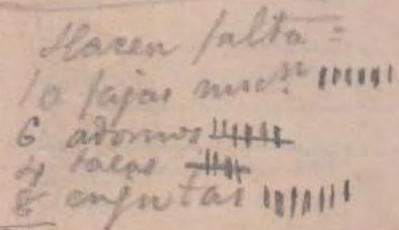 Hacen falta =
10 fajas
6 adornos
4 tacos
8 enjutas